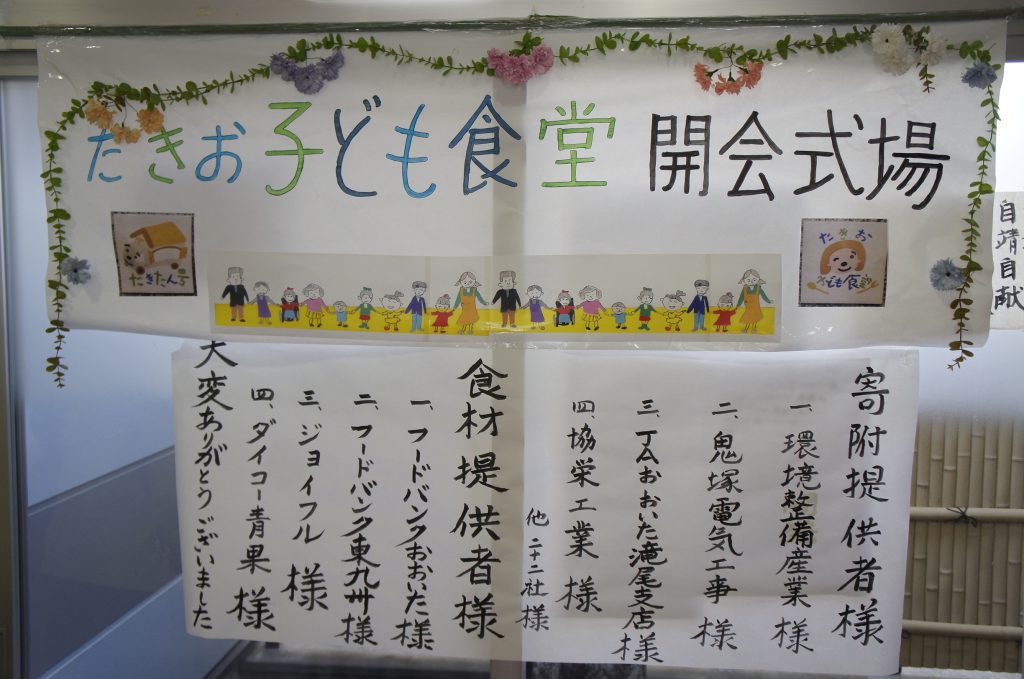 たきお子ども食堂 開会式場
たきたん号
たきお
子ども食堂
自靖自献
寄附提供者様
一、環境整備産業様
二、鬼塚電気工事様
三、JAおおいた滝尾支店様
四、協栄工業様
他二十二社様
食材提供者様
一、フードバンクおおいた様
二、フードバンク東九州様
三、ジョイフル様
四、ダイコー青果様
大変ありがとうございました